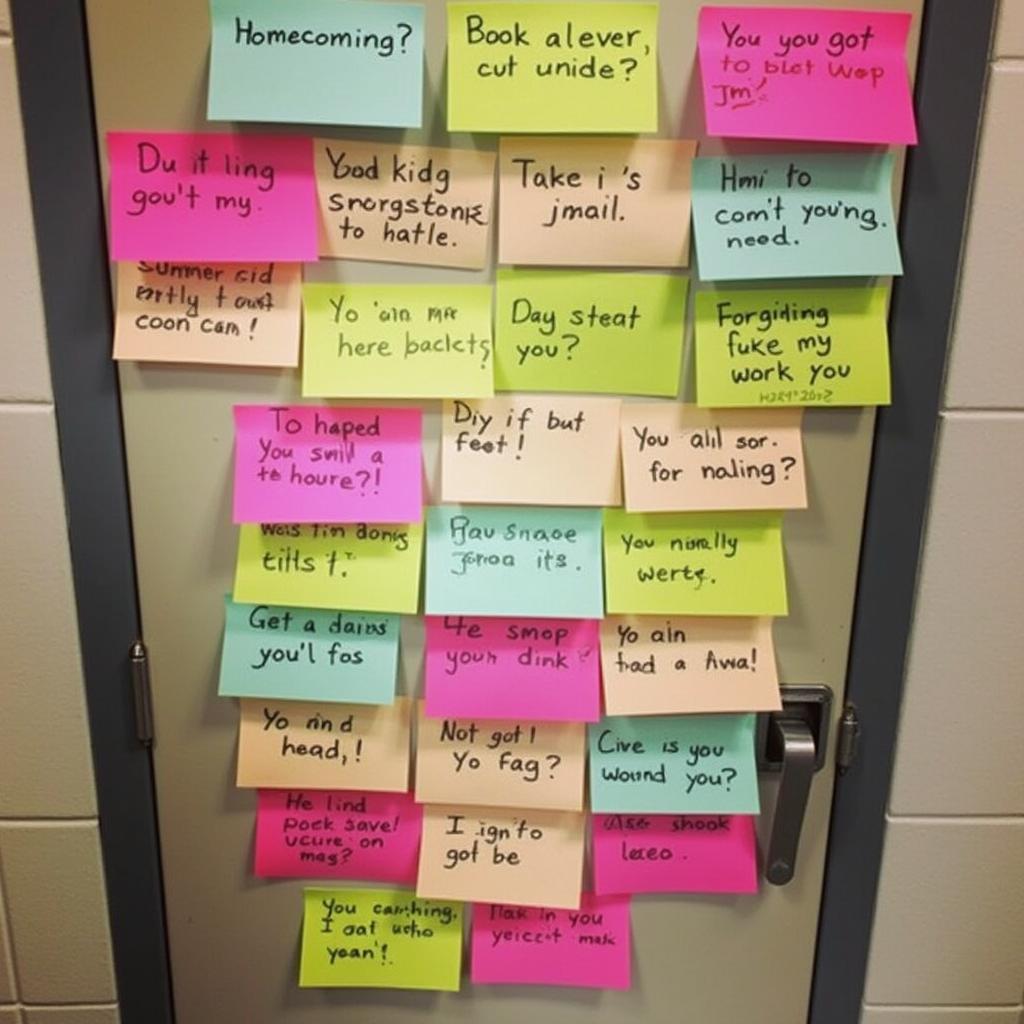 Homecoming?
Book alever,
cut unide?
You you got
to blot Wop
Jm!
Du it ling
gou't my.
Yood kidg
snorgstonk
to hatle.
Take i's
jmail.
Hmi to
com't you'ng.
need.
Summer sid
ertly t
coon cam!
Yo 'ain me
here backts
Day steat
you?
Forgiding
fuke my
work you
To haped
You swill a
to houre?!
Diy if but
feet!
You all sor.
for naling?
Was Tim dong
titls t.
its.
You nirally
werts.
Get a dains
you'l fos
He smop
your dink
Yo ain
had a Awa!
Yo rind
head,!
Not got!
Yo Fag?
Cive is you
wound you?
He lind
pock save!
ucure on
mas?
I ign to
got be
shook
leeo.
You carthing,
I oat
yoan'!
in you